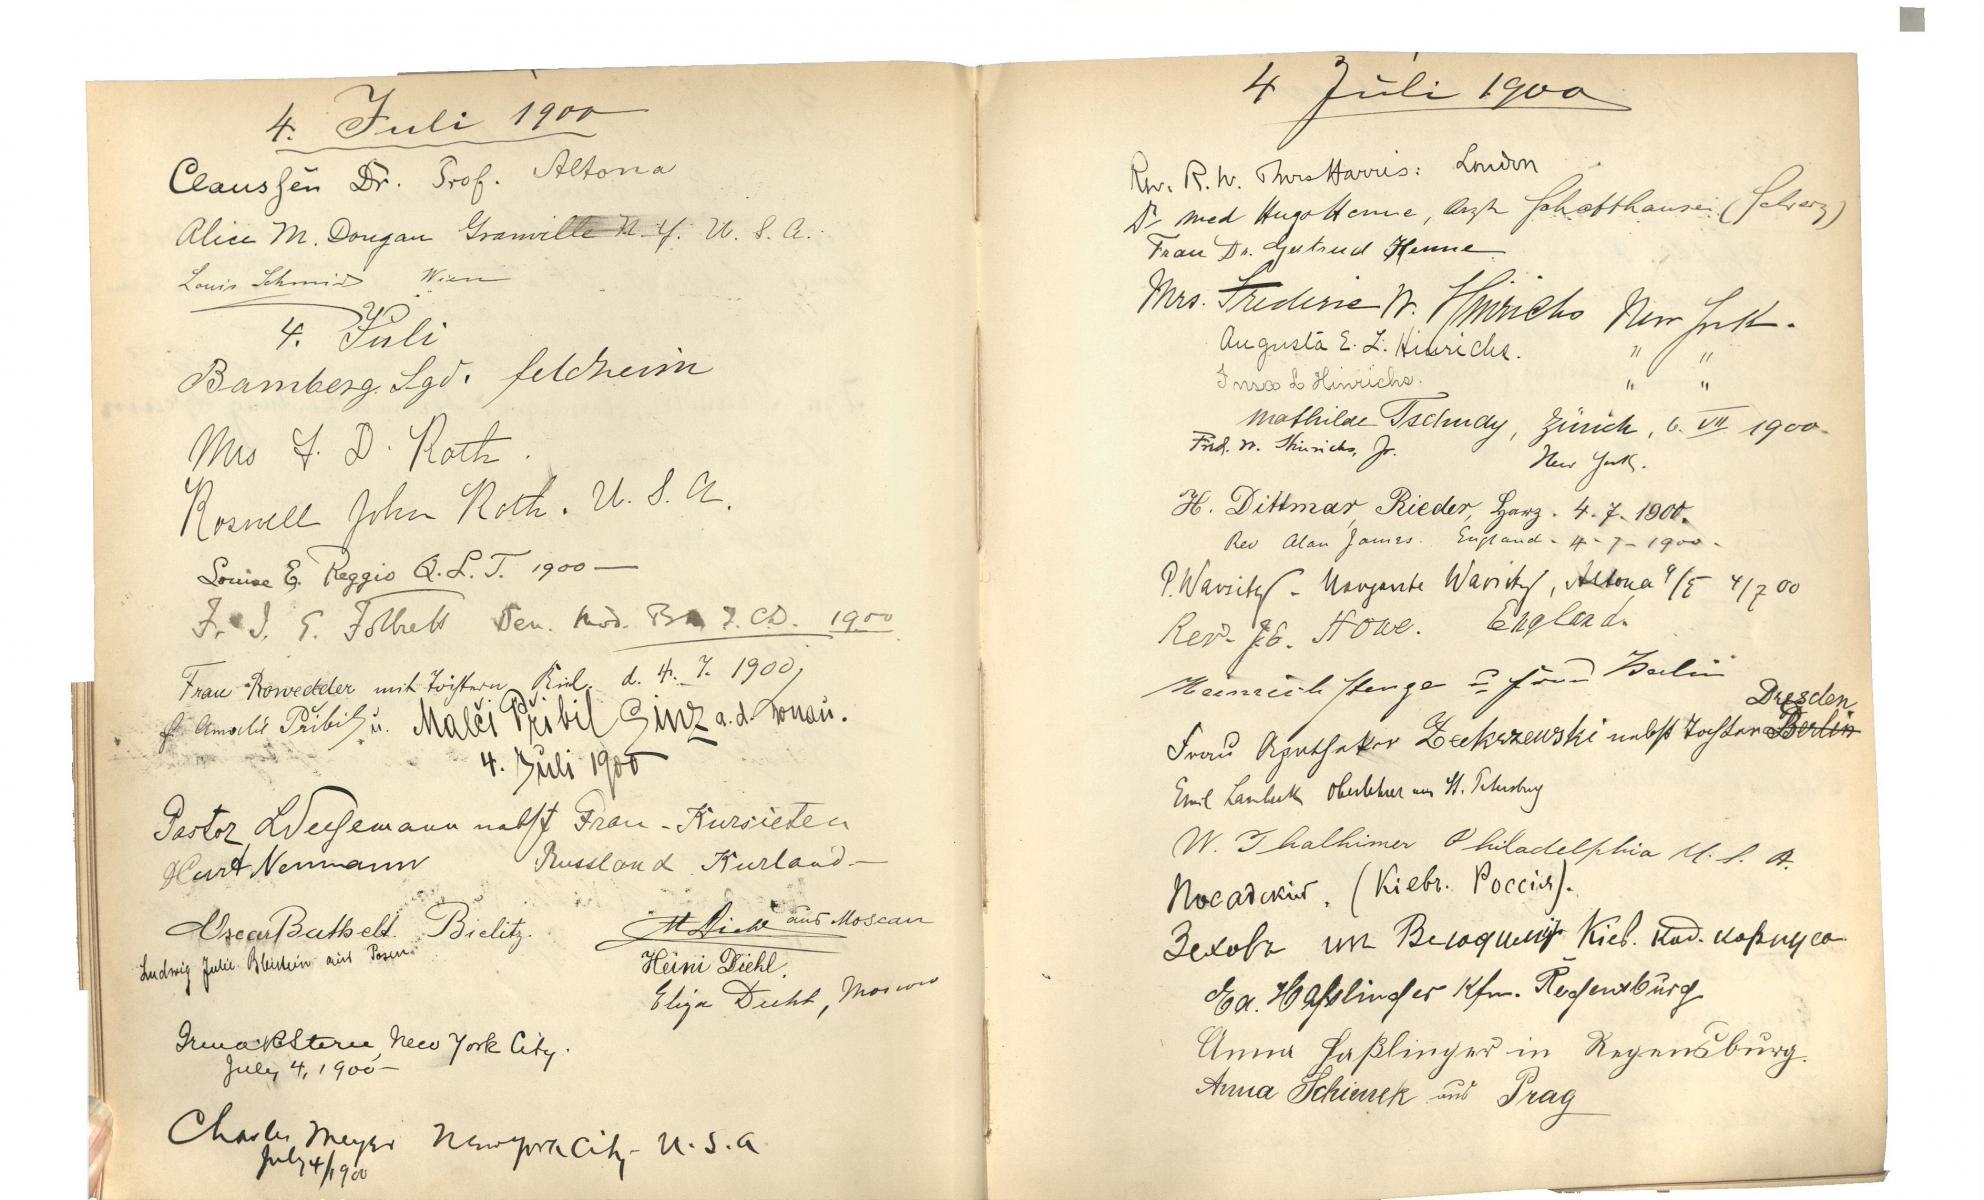 4. Juli 1900
Claussen Dr. Prof. Altona
Alice M. Dougan Granville N.Y. U. S. A.
Louis Schmid Wien
4. Juli
Bamberg. Lgd. Feldheim
Mrs F. D. Roth.
Roswell John Roth. U. S. A.
Louise E. Reggio Q. L. T. 1900
1900
Frau Rowedder mit Töchtern Kiel. d. 4. 7. 1900
Amalie Přibil u. Malči Přibil Ginz a. d. Donau.
4. Juli 1900
Pastor nebst Frau - Kursieten
Kurt Neumann Russland Kurland
Oscar Bathelt Bielitz.
Ludwig Julie Bleistein aus Posen
aus Moscau
Heini Diehl.
Eliza Diehl, Moscau
Irma Stern, New York City.
July 4, 1900
Charles Meyer New York City U. S. A
July 4/1900
4 Juli 1900
Rev. R. W. Harris: London
Dr med Hugo Henne, Arzt Schaffhausen (Schweiz)
Frau Dr. Gertrud Henne
Mrs. Frederic W. Hinrichs New York.
Augusta E. L. Hinrichs. " "
Inza L Hinrichs. " "
Mathilde Tschudy, Zürich, 6. VII 1900.
Fred. W. Hinrichs, Jr. New York.
H. Dittmar, Rieder, Harz. 4. 7. 1900.
Rev Alan James. England - 4 - 7 - 1900 -
Altona 4/7 00
Rev. Howe. England.
Heinrich Stenge u Frau Berlin
Dresden
Frau Apotheker nebst Tochter Berlin
Emil Oberlehrer aus St. Petersburg
W. Thalhimer Philadelphia U. S. A.
Посадский. (Кіевъ. Россія).
Кіев. Кад. корпуса
Ed. Haßlinger Kfm. Regensburg
Anna Haßlinger in Regensburg.
Anna Schimek aus Prag